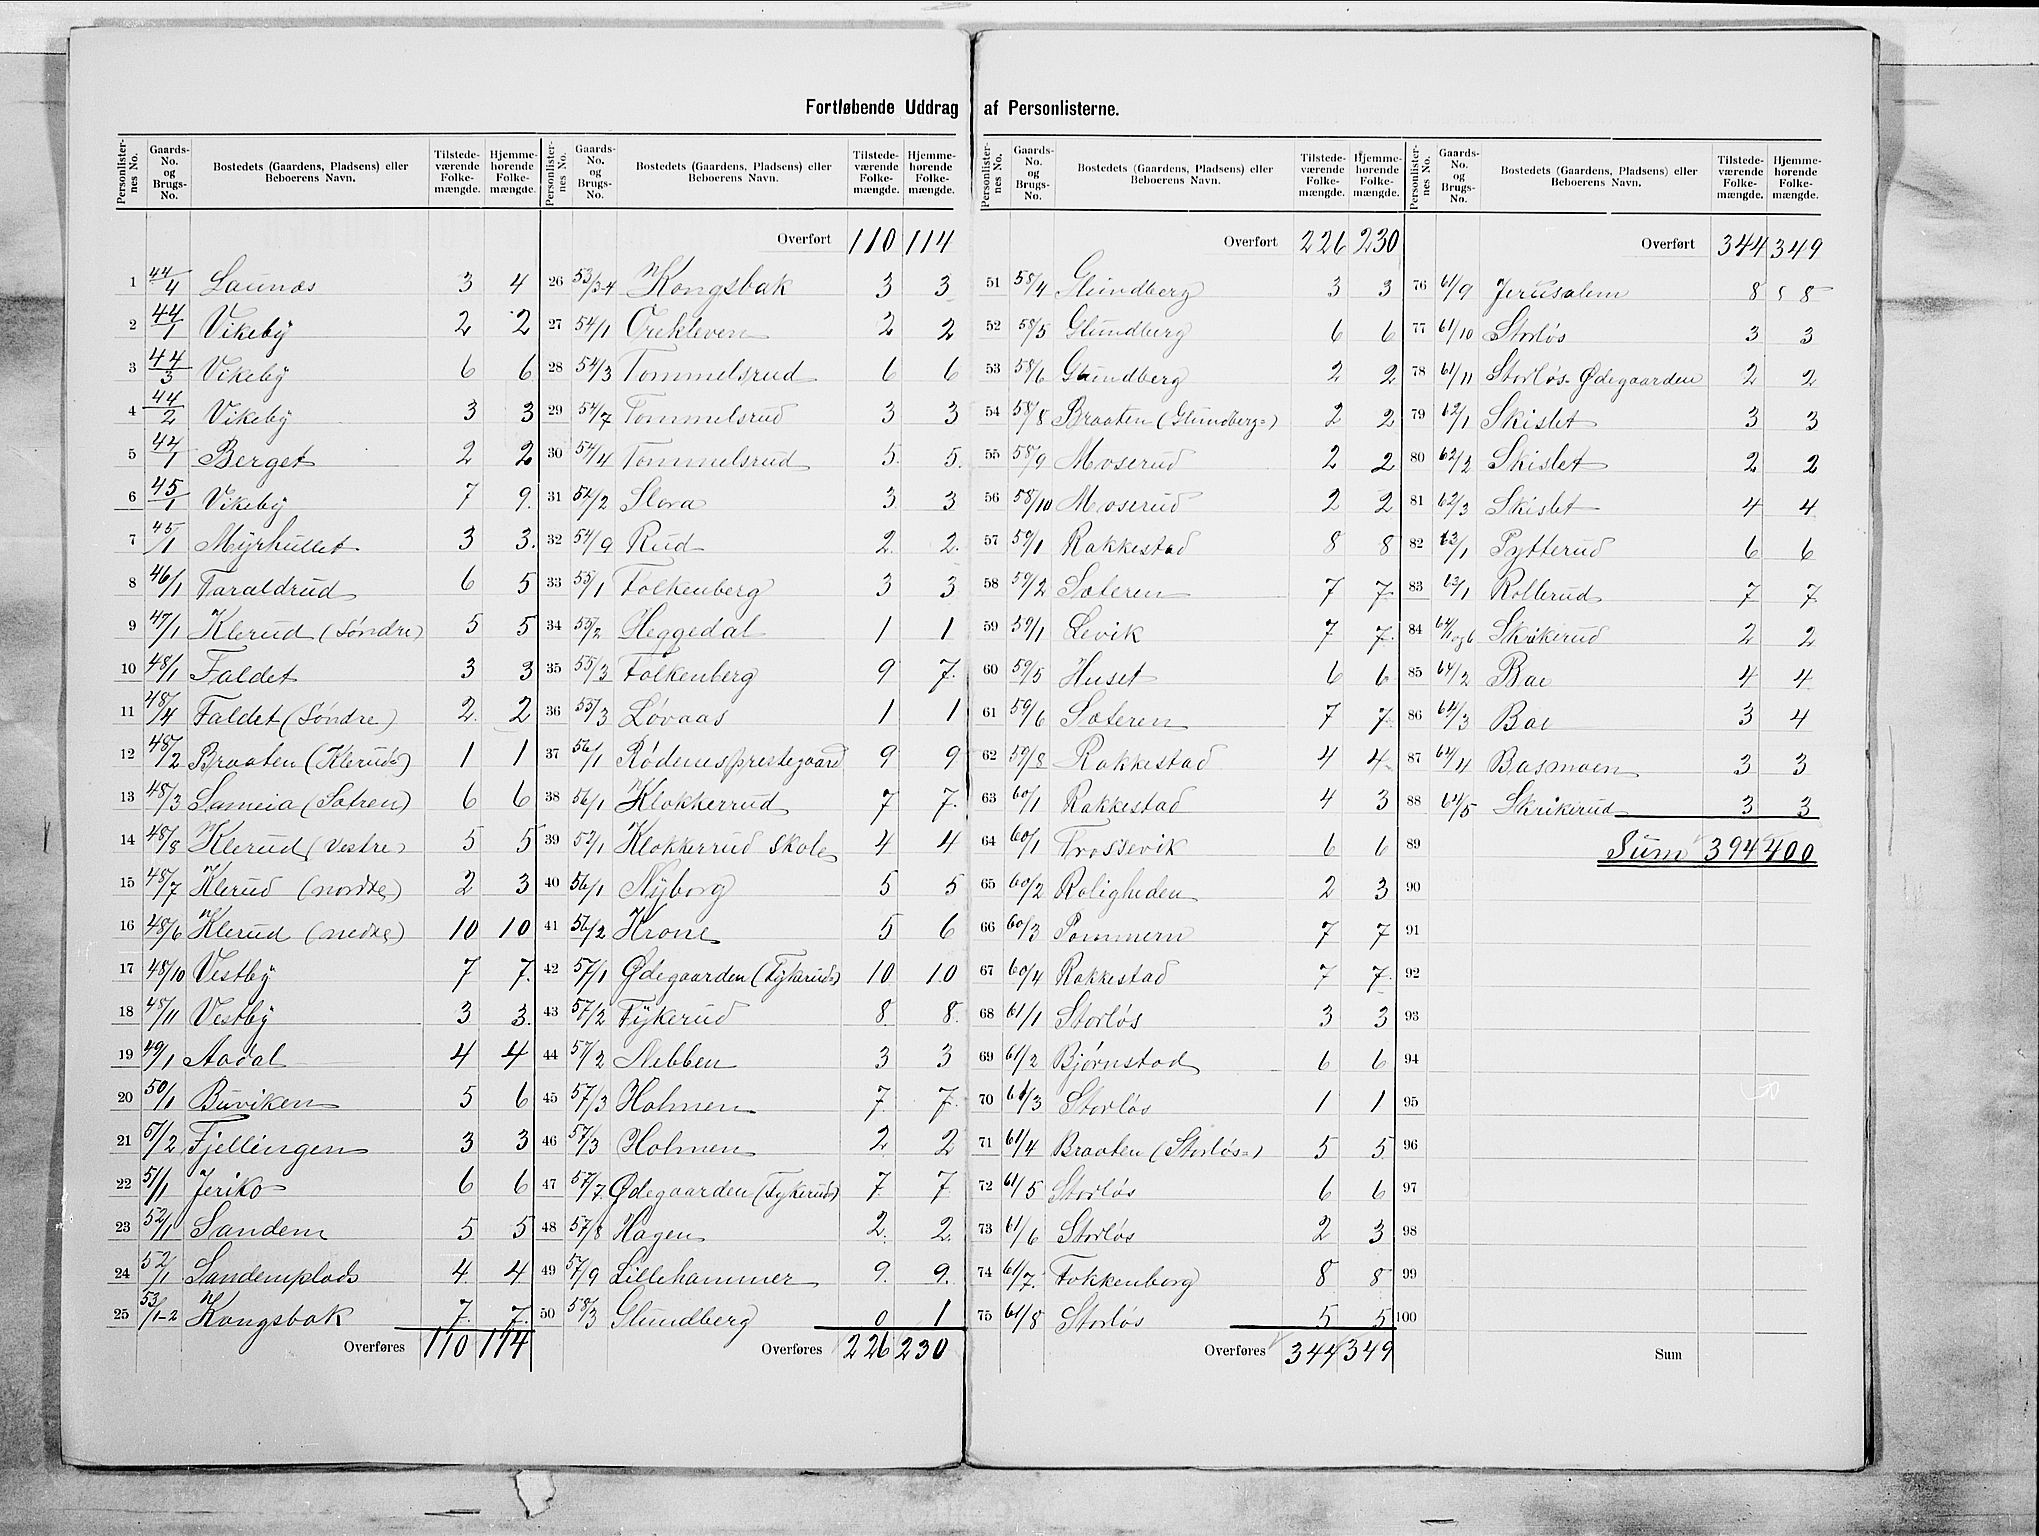 Fortløbende Uddrag af Personlisterne.
Personlister-nes No. Gaards-No. og Brugs-No. Bostedets (Gaardens, Pladsens) eller Beboerens Navn. Tilstede-værende Folke-mængde. Hjemme-hørende Folke-mængde.
1 44/4 Launæs 3 4
2 44/1 Vikeby 2 2
3 44/3 Vikeby 6 6
4 44/2 Vikeby 3 3
5 44/1 Berget 2 2
6 45/1 Vikeby 7 9.
7 45/1 Myrhullet 3 3.
8 46/1 Taraldrud 6 5
9 47/1 Klerud (Søndre) 5 5
10 48/1 Faldet 3 3
11 48/4 Faldet (Søndre) 2. 2
12 48/2 Braaten (Klerud=) 1 1
13 48/3 Sameia (Sætren) 6 6
14 48/8 Klerud (Vestre) 5 5
15 48/7 Klerud (nordre) 2 3
16 48/6 Klerud (nedre) 10 10
17 48/10 Vestby 7 7.
18 48/11 Vestby 3 3.
19 49/1 Aadal 4 4
20 50/1 Buviken 5 6
21 51/2 Fjellingen 3 3
22 51/1 Jeriko 6 6
23 52/1 Sandem 5 5
24 52/1 Sandemplads 4. 4
25 53/1-2 Kongsbak 7. 7.
Overføres 110 114
Personlister-nes No. Gaards-No. og Brugs-No. Bostedets (Gaardens, Pladsens) eller Beboerens Navn. Tilstede-værende Folke-mængde. Hjemme-hørende Folke-mængde.
Overført 110 114
26 53/3-4 Kongsbak 3 3
27 54/1 Orekleven 2 2
28 54/3 Tommelsrud 6 6
29 54/7 Tommelsrud 3 3
30 54/4 Tommelsrud 5. 5.
31 54/2 Slora 3 3
32 54/9 Rud 2. 2.
33 55/1 Folkenberg 3 3
34 55/2 Heggedal 1 1
35 55/3 Folkenberg 9 7.
36 55/3 Løvaas 1 1
37 56/1 Rødenesprestegaard 9 9
38 56/1 Klokkerrud 7 7.
39 52/1 Klokkerrud skole 4 4
40 56/1 Nyborg 5 5
41 56/2 Krone 5 6
42 57/1 Ødegaarden (Tykerud=) 10 10
43 57/2 Tykerud 8. 8.
44 57/2 Nebben 3 3
45 57/3 Holmen 7. 7.
46 57/3 Holmen 2 2
47 57/7 Ødegaarden (Tykerud=) 7 7
48 57/8 Hagen 2. 2.
49 57/9 Lillehammer 9. 9.
50 58/3 Glundberg 0 1
Overføres 226 230
Personlister-nes No. Gaards-No. og Brugs-No. Bostedets (Gaardens, Pladsens) eller Beboerens Navn. Tilstede-værende Folke-mængde. Hjemme-hørende Folke-mængde.
Overført 226 230
51 58/4 Glundberg 3 3
52 58/5 Glundberg 6 6
53 58/6 Glundberg 2 2
54 58/8 Braaten (Glundberg=) 2 2
55 58/9 Moserud 2 2
56 58/10 Moserud 2 2
57 59/1 Rakkestad 8 8
58 59/2 Sæteren 7 7.
59 59/1 Levik 7 7.
60 59/5 Huset 6 6
61 59/6 Sæteren 7 7.
62 59/8 Rakkestad 4 4.
63 60/1 Rakkestad 4 3
64 60/1 Trossevik 6 6
65 60/2 Roligheden 2 3
66 60/3 Pommern 7 7
67 60/4 Rakkestad 7 7.
68 61/1 Storløs 3 3
69 61/2 Bjørnstad 6 6
70 61/3 Storløs 1 1
71 61/4 Braaten (Storløs=) 5 5
72 61/5 Storløs 6 6
73 61/6 Storløs 2 3
74 61/7. Fokkenborg 8 8
75 61/8 Storløs 5 5
Overføres 344 349
Personlister-nes No. Gaards-No. og Brugs-No. Bostedets (Gaardens, Pladsens) eller Beboerens Navn. Tilstede-værende Folke-mængde. Hjemme-hørende Folke-mængde.
Overført 344 349
76 61/9 Jerusalem 8 8 8
77 61/10 Storløs 3 3
78 61/11 Storløs-Ødegaarden 2 2
79 62/1 Skislet 3 3
80 62/2 Skislet 2 2
81 62/3 Skislet 4 4
82 63/1 Pytterud 6 6
83 63/1 Rollerud 7 7
84 64/1 og 6 Skrikerud 2 2
85 64/2 Bae 4 4
86 64/3 Bae 3 4
87 64/4 Basmoen 3 3
88 64/5 Skrikerud 3 3
89 Sum 394 400
90
91
92
93
94
95
96
97
98
99
100
Sum